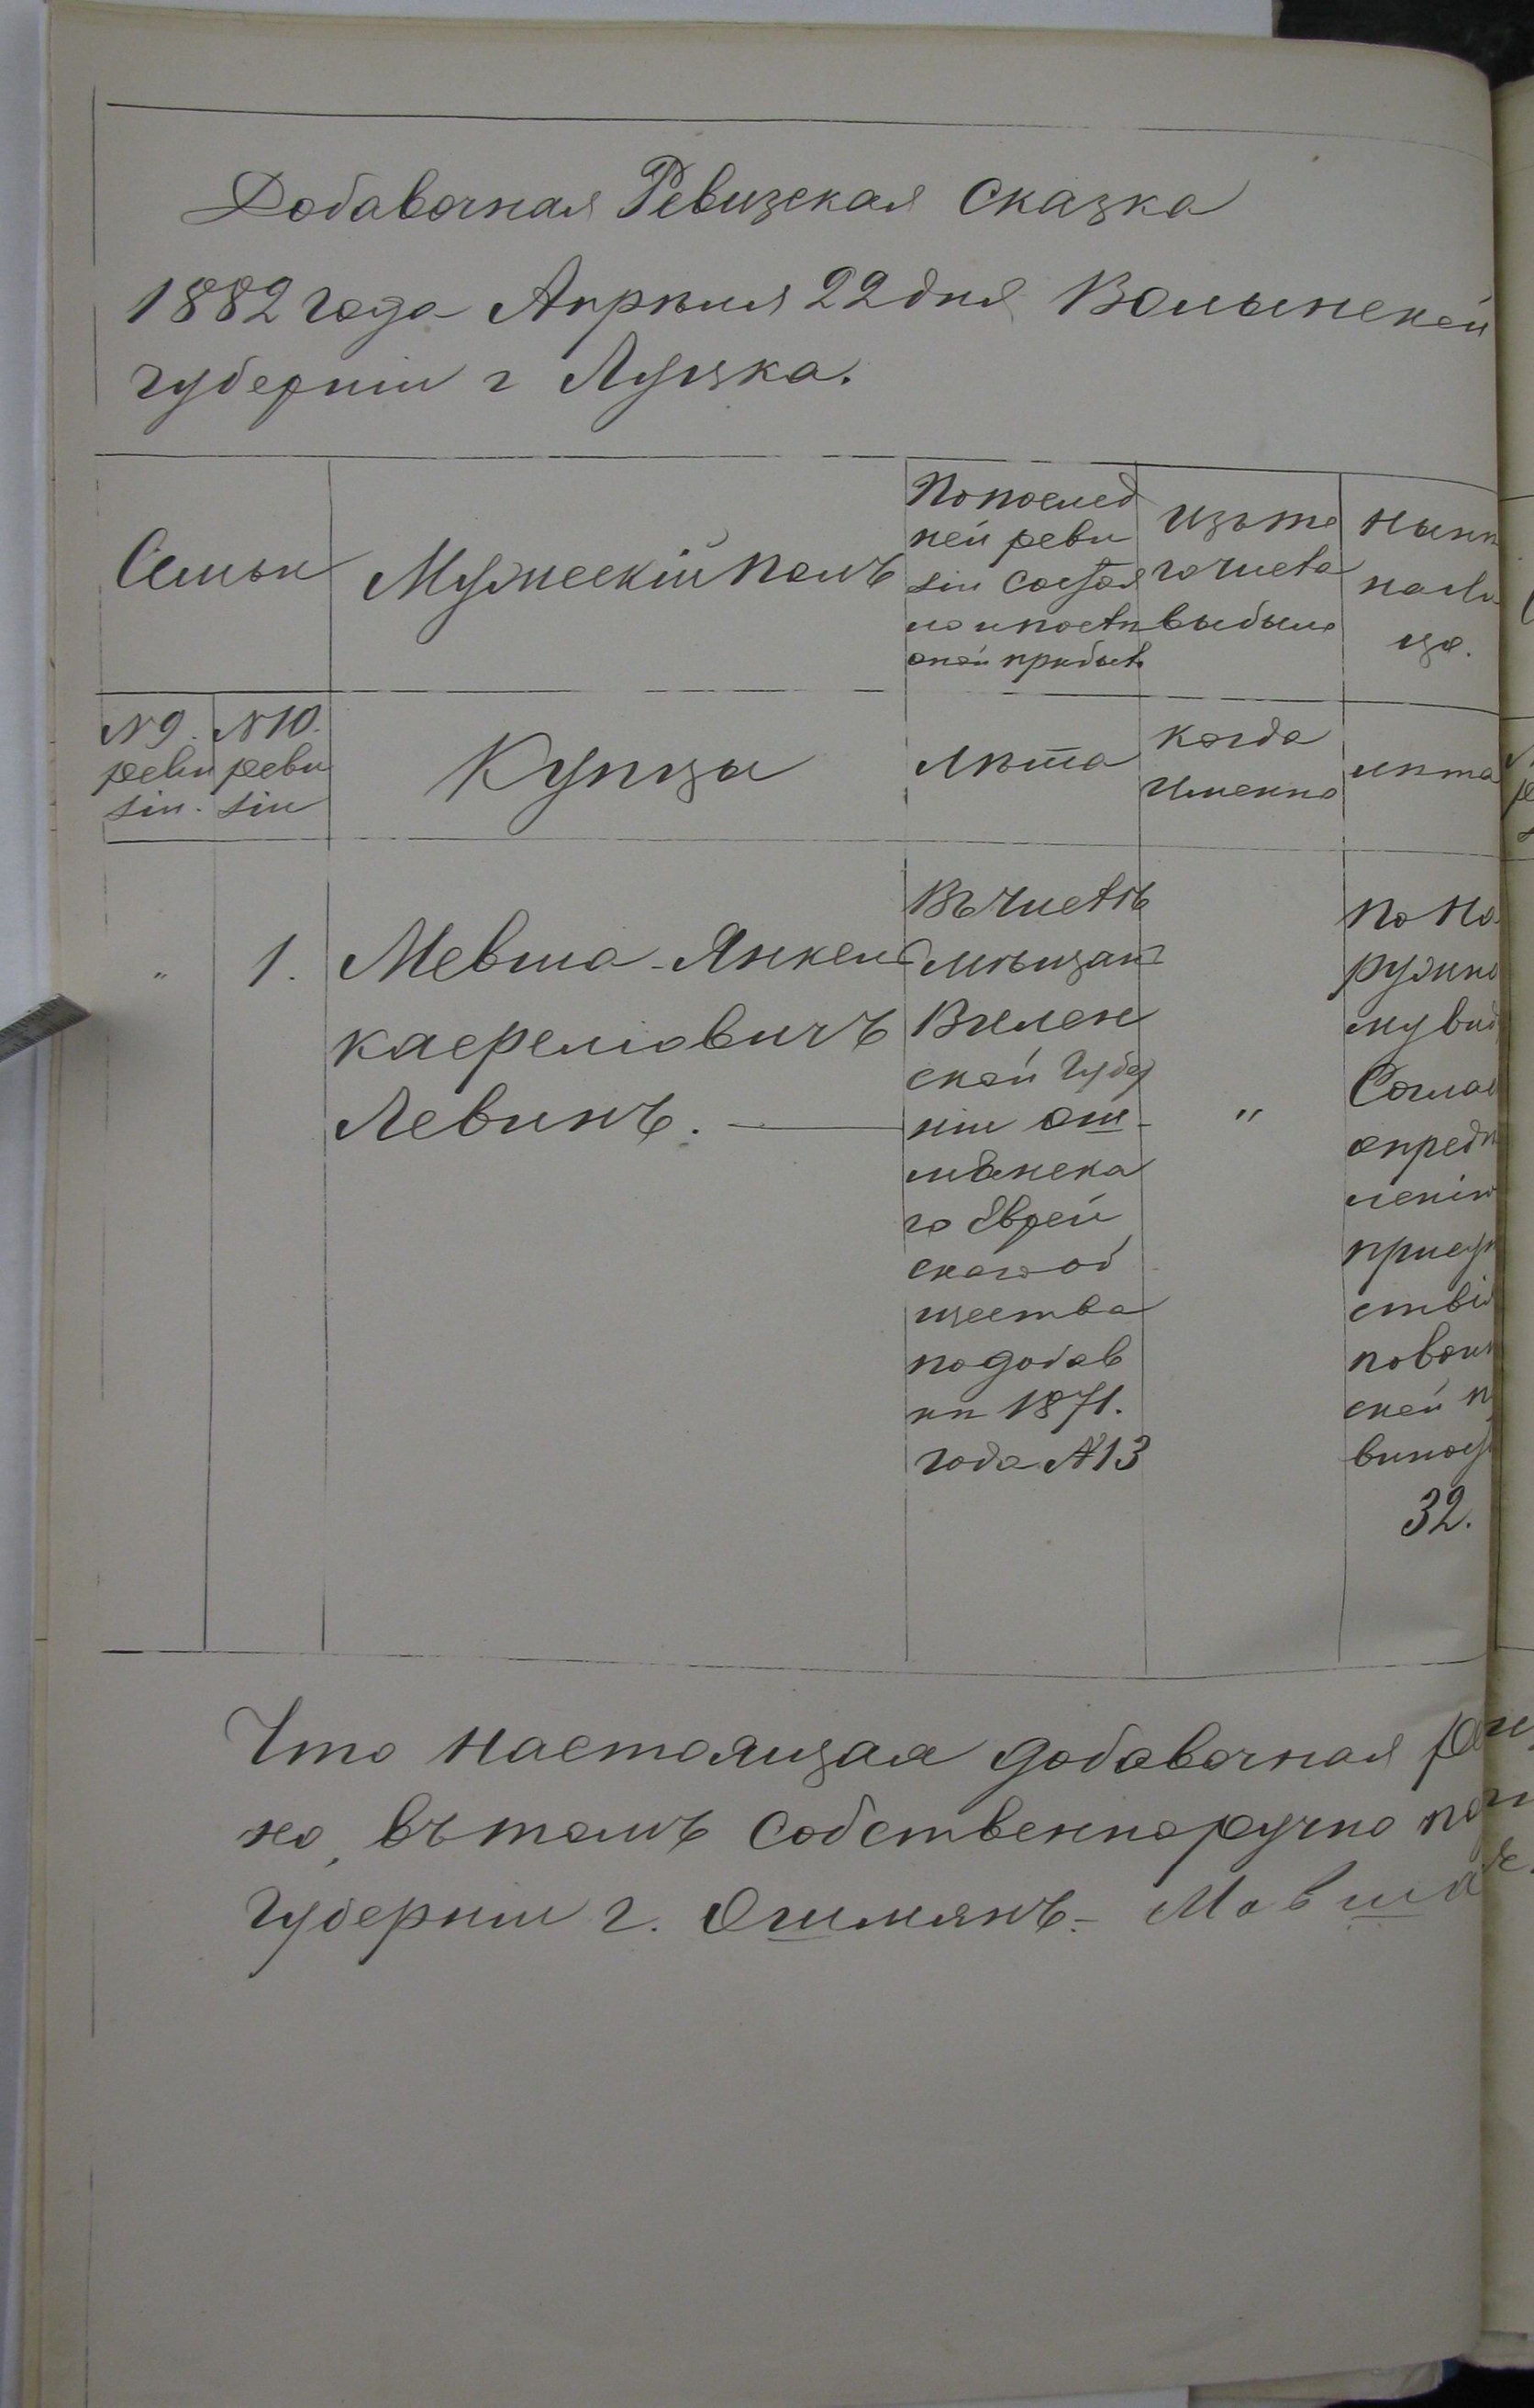 Добавочная Ревизская Сказка
1882 года Апрѣля 22 дня Волынской
губерніи г Луцка.
Семьи
Мужескій полъ
По послѣд
ней реви
зіи состоя
ло и послѣ
оной прибыло
Изъ то
го числа
выбыло
Нынѣ
на ли
цо.
№ 9.
реви
зіи.
№ 10.
реви
зіи
Купцы
Лѣта
когда
Именно
лѣта
"
1.
Мевша-Янкель
Левинъ.
Въ числѣ
мѣщанъ
Вилен
ской Губер
ніи Ош-
мянска
го Еврей
скаго об
щества
по добав
кѣ 1871.
года №13
"
по На
ружно
му виду
Соглас
опредѣ
ленію
присут
ствія
по воин
ской п
виност
32.
Что настоящая добавочная ре
но, въ томъ собственноручно по
Губерніи г. Ошмянъ.- Мовша